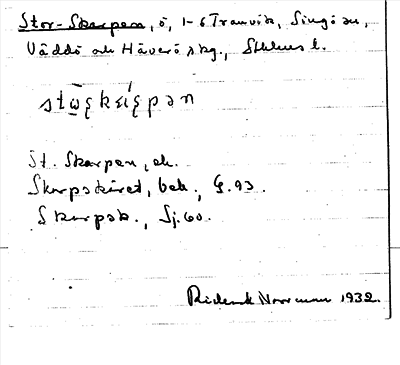 Stor-Skarpen, ö, 1-6 Tranvik, Singö sn,
Väddö och Häverö skg., Sthlms l.
St. Skarpen, ek.
Skarpskäret, bek., G. 93.
Skarpsk., Sj. 60.
Rickard Norrman 1932.